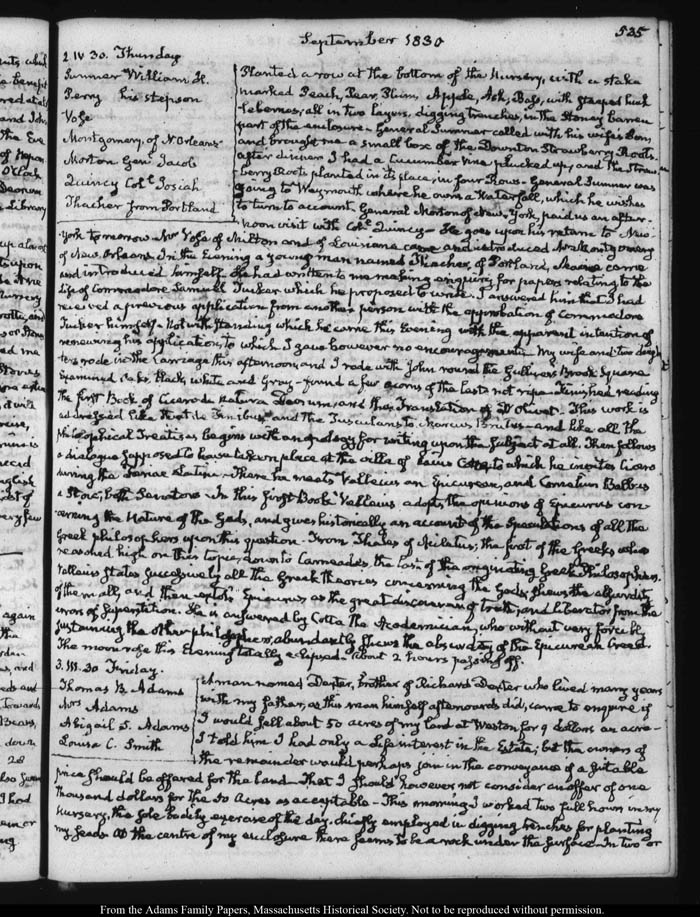 September 1830
535
2 IV 30. Thursday
Sumner William H.
Perry his stepson
Vose
Montgomery, of N. Orleans
Morton Genl. Jacob
Quincy Coll. Josiah
Thacher from Portland
Planted a row at the bottom of the Nursery, with a stake
marked Peach, Pear, Plum, Apple, Ash, Bass, with steeped hick
all in two layers, digging trenches, in the Stoney barren
part of the enclosure. General Sumner called with his wife's son,
and brought me a small box of the Downton Strawberry Roots.
after dinner I had a Cucumber Vine plucked up, and the Straw
berry Roots planted in its place, in four Rows. General Sumner was
going to Weymouth where he owns a Waterfall, which he wishes
to turn to account. General Morton of New-York, paid us an after-
noon visit with Coll. Quincy. He goes upon his return to New-
York tomorrow. Mr. Vose of Milton and of Louisiana came and introduced Mr. Montgomery
of New Orleans. In the Evening a young man named Thacher, of Portland, Maine came
and introduced himself. He had written to me making enquiry for papers relating to the
Life of Commodore Samuel Tucker which he proposed to write. I answered him that I had
received a previous application from another person with the approbation of Commodore
Tucker himself. Notwithstanding which he came this Evening with the apparent intention of
renewing his application, to which I gave however no encouragement. My wife and two daugh
ters rode in the Carriage this afternoon, and I rode with John round the Gulliver's Brook Square
Examined Oaks, Black, white and Gray. found a few acorns of the last not ripe. Finished reading
the first Book of Cicero de Natura Deorum, and the Translation of D'Olivet. This work is
addressed like that de Finibus and the Tusculans to Marcus Brutus. and like all the
philosophical Treatises begins with an apology for writing upon the subject at all. Then follows
a dialogue supposed to have taken place at the villa of Caius Cotta to which he invites Cicero
during the Feriae Latinae. There he meets Velleius an Epicurean, and Cornelius Balbus
a Stoic, both Senators. In this first Book Velleius adopts the opinions of Epicurus con-
cerning the Nature of the Gods, and gives historically an account of the Speculations of all the
Greek philosophers upon this question. From Thales of Miletus, the first of the Greeks who
reasoned high on this topic, down to Carneades, the last of the originating Greek Philosophers.
Velleius states successively all the Greek theories concerning the Gods, shews the absurdity
of them all, and then extols Epicurus, as the great discoverer of truth, and liberator from the
errors of Superstition. He is answered by Cotta the Academician, who without very forcibly
sustaining the other philosophers, abundantly shews the absurdity of the Epicurean Creed.
The moon rose this Evening totally eclipsed. About 2 hours passing off.
3. 30 Friday.
Thomas B. Adams
Mrs Adams
Abigail S. Adams
Louisa C. Smith
A man named Dexter, brother of Richard Dexter who lived many years
with my father, as this man himself afterwards did, came to enquire if
I would sell about 50 acres of my land at Weston for 9 dollars an acre.
I told him I had only a Life interest in the Estate; but the owners of
the remainder would perhaps join in the conveyance if a suitable
price should be offered for the land. That I should however not consider an offer of one
thousand dollars for the 50 Acres as acceptable. This morning I worked two full hours in my
Nursery, the sole bodily exercise of the day. chiefly employed in digging trenches for planting
my Seeds. At the centre of my enclosure there seems to be a rock under the surface. In two or
From the Adams Family Papers, Massachusetts Historical Society. Not to be reproduced without permission.